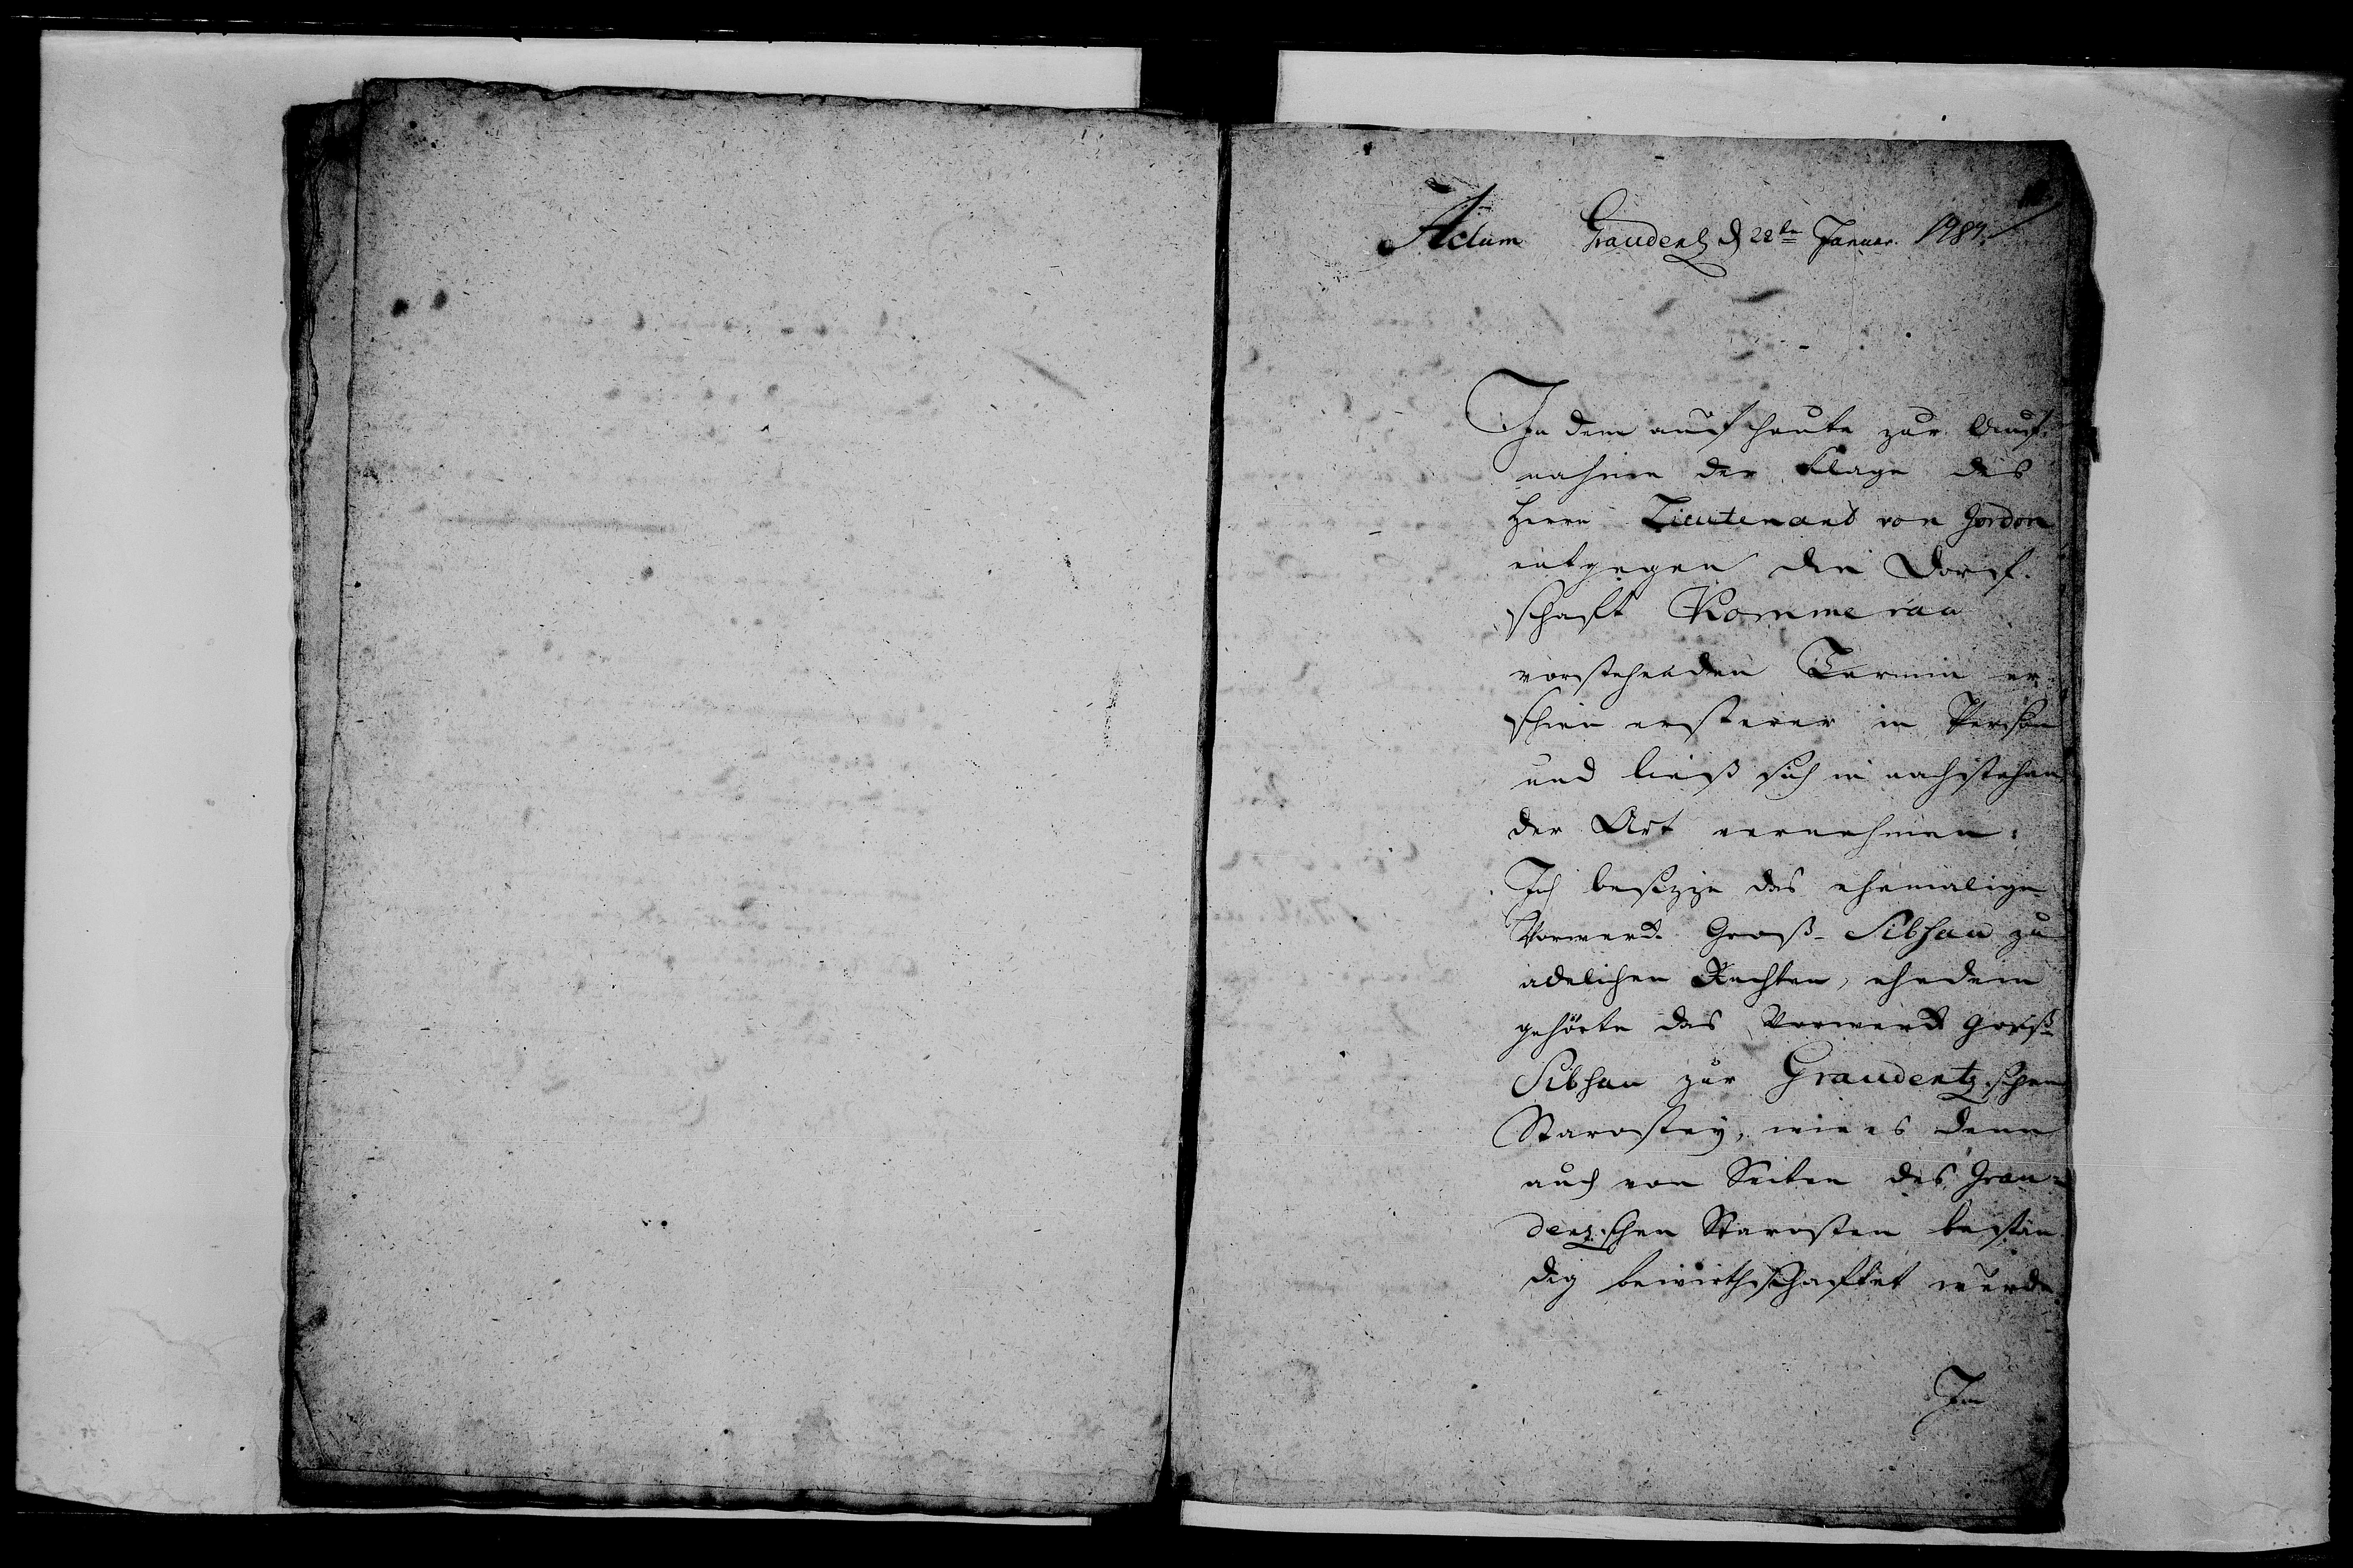 Actum Graudentz d 22ten Januar. 1787.
In dem auf heute zur Auf-
nahme der Klage des
Herrn Lieutenant von Gordon
entgegen die Dorf-
schaft Kommerau
vorstehenden Termin er-
schien ersterer in Person
und ließ sich in nachstehen
der Art vernehmen:
Ich besizze das ehemalige
Vorwerk Groß-Sibsau zu
adelichen Rechten, ehedem
gehörte das Vorwerk Groß-
Sibsau zur Graudentz.schen
Starostey, wie es denn
auch von Seiten des Grau-
denz.schen Starosten bestän
dig bewirthschaftet wurde.
Im